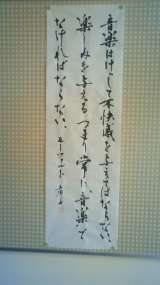 音楽はけっして不快感を与えてはならない
楽しみを与えるつまり常に音楽で
なければならない モーツァルト